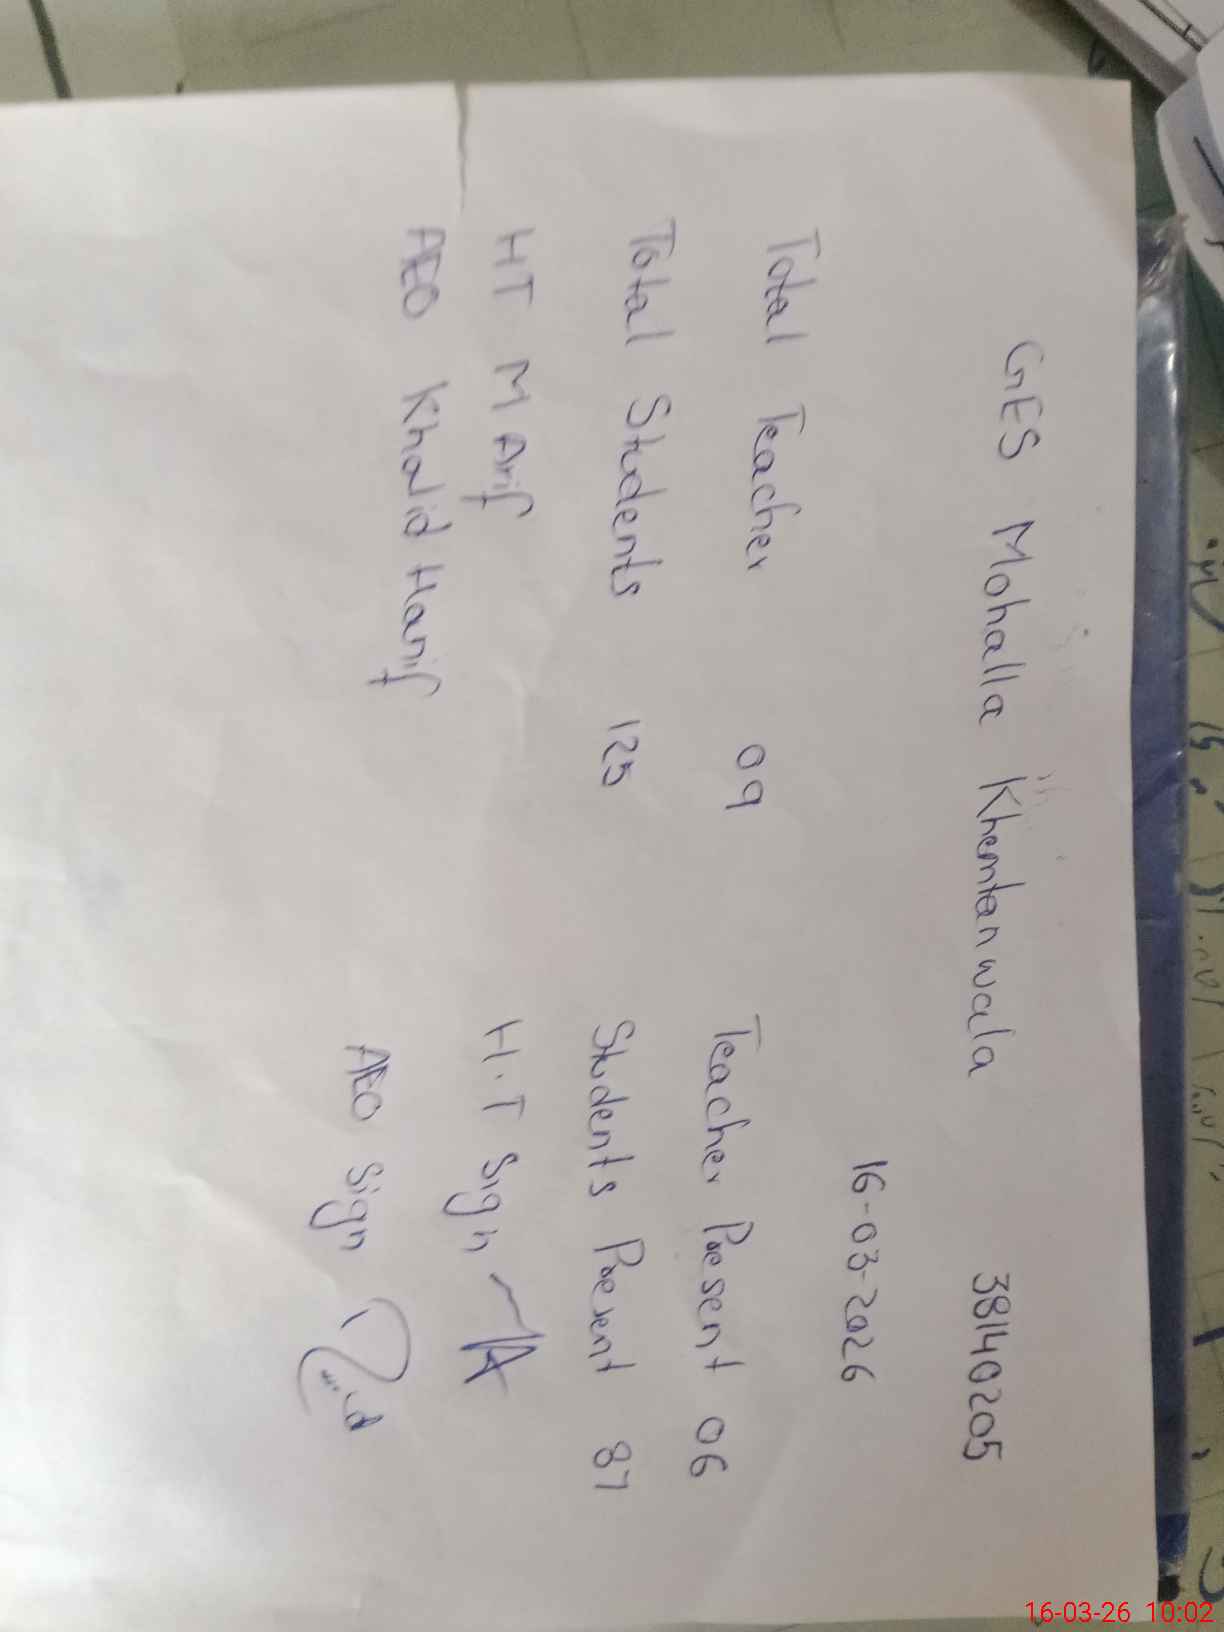 GES Mohalla Khemtanwala 38140205
16-03-2026
Total Teacher 09 Teacher Present 06
Total Students 125 Students Present 87
HT M Arif H.T Sign
AEO Khalid Hanif AEO Sign
16-03-26 10:02